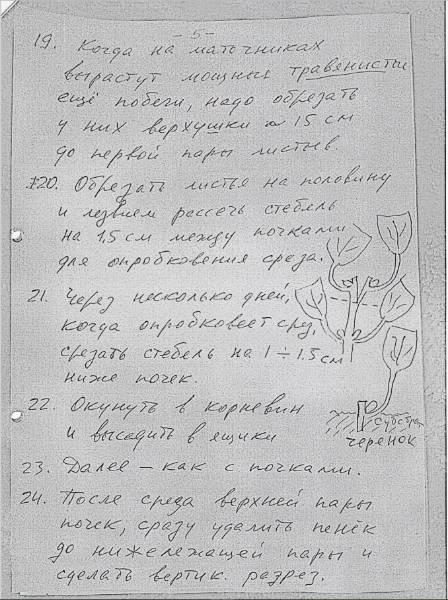 - 5 -
19. Когда на маточниках
вырастут мощные травянистые
ещё побеги, надо обрезать
у них верхушки ~ 15 см
до первой пары листьев.
20. Обрезать листья на половину
и лезвием рассечь стебель
на 1.5 см между почками
для опробковения среза.
21. Через несколько дней,
когда опробковеет срез,
срезать стебель на 1 ÷ 1.5 см
ниже почек.
22. Окунуть в корневин
и высадить в ящики
субстрат
черенок
23. Далее – как с почками.
24. После среза верхней пары
почек, сразу удалить пенёк
до нижележащей пары и
сделать вертик. разрез.